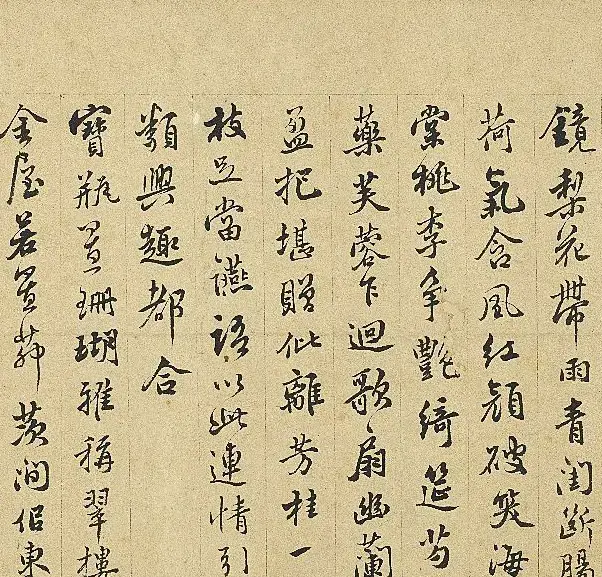 鏡梨花帶雨青閨斷腸
荷氣含風紅顏破笑海
棠桃李爭艷綺筵芍
藥芙蓉下迴歌扇幽蘭
盈把堪贈仳離芳桂一
枝足當讌語以此連情引
類興趣都合
寶瓶置珊瑚雅稱翠樓
金屋若置茆茨澗侶東